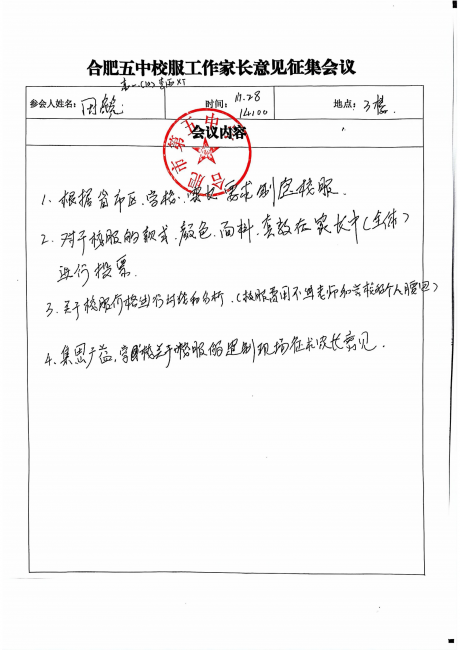 合肥五中校服工作家长意见征集会议
参会人姓名：
时间：11.28
14:00
地点：3楼.
会议内容
合肥市第五中
1、根据省市区、学校、要求制定校服.
2、对于校服的款式、颜色、面料、套数在家长中(全体)
进行投票.
3、关于校服价格进行讨论和分析.(校服费用不进老师和学校的个人腰包)
4、集思广益,学校关于校服的选制现场征求家长意见.